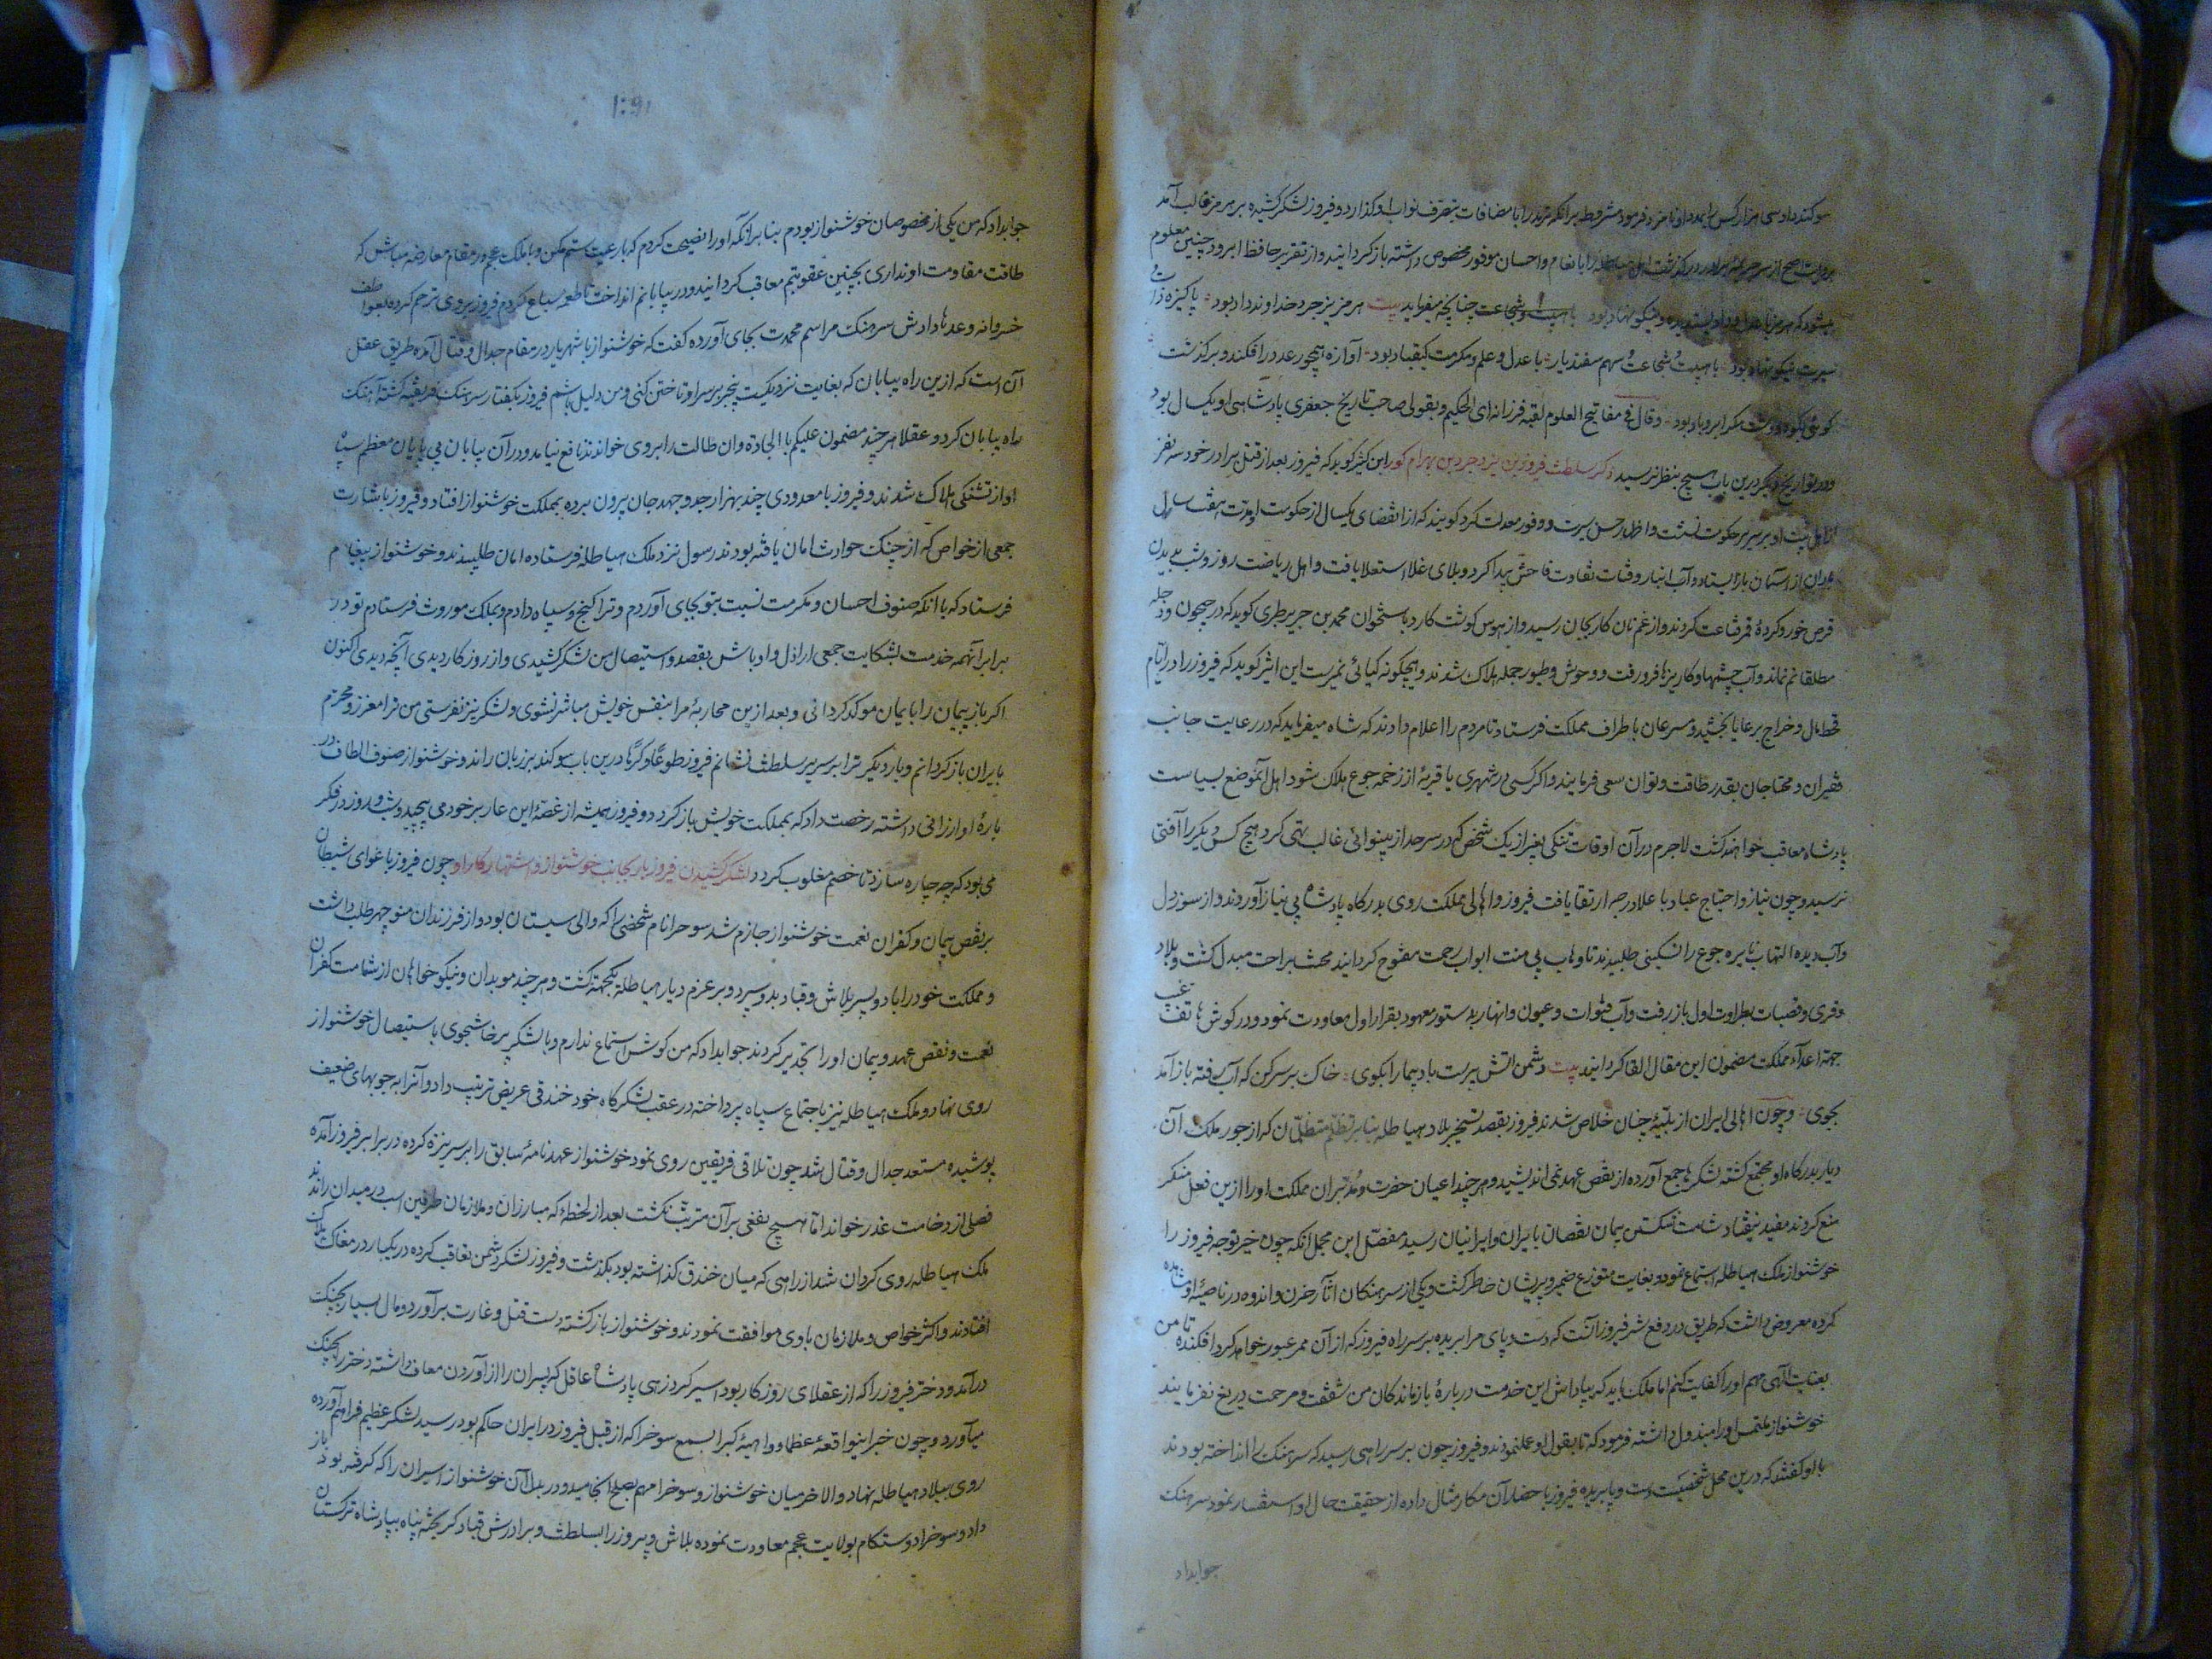 سوکند داد و سی هزار کس را بمدد او نامزد فرمود مشروط برانکه ترمذ را با مضافات بتصرف نواب او کذارد و فیروز لشکر کشیده بر هرمز غالب آمد
از سر جریمهٔ برادر در کذشت اهل هیاطله را بانعام و احسان موفور مخصوص داشته باز کردانید و از تقریر حافظ ابرو چنین معلوم
میشود که هرمز پسندیده و نیکو نهاد بود با هیبت و شجاعت چنانچه میفرماید بیت هرمز یزجرد خداوند داد بود پاکیزه ذات
سیرت نیکو نهاد بود با هیبت و شجاعت سهم سفندیار با عدل و علم و مکرمت کیقباد بود آوازه همچو رعد در افکند و برکذشت
بود و قال فی مفاتیح العلوم لقبه فرزانه ای الحکیم و بقولی صاحب تاریخ جعفری پادشاهی او یکسال بود
و در تواریخ دیکر درین باب هیچ بنظر نرسید ذکر سلطنت فیروز بن یزدجرد بن بهرام کور ابن کثیر کوید که فیروز بعد از قتل برادر خود سه نفر
از اهل بیت او بر سریر حکومت نشست و اظهار حسن سیرت و وفور معدلت کرد کویند که از انقضای یکسال از حکومت او مدت هفت سال
باران از آسمان باز ایستاد و آب انبار و قنات تفاوت فاحش پیدا کرد و بلای غلا استعلا یافت و اهل ریاضت روز و شب بدیدن
قرص خور و کردهٔ قمر قناعت کردند و از غم نان کار بجان رسید و از هوس کوشت کارد باستخوان محمد بن جریر طبری کوید که در جیحون و دجله
مطلقا نم نماند و آب چشمها و کاریزها فرو رفت و وحوش و طیور جمله هلاک شدند و هیچکونه کیائی نمیرست ابن اثیر کوید که فیروز را در ایام
قحط مال و خراج برعایا بخشید و مسرعان باطراف مملکت فرستاد تا مردم را اعلام دادند که شاه میفرماید که در رعایت جانب
فقیران و محتاجان بقدر طاقت و توان سعی فرمایند و اکر کسی در شهری یا قریهٔ از زخمه جوع هلاک شود اهل آنموضع بسیاست
پادشاه معاقب خواهند کشت لاجرم در آن اوقات تنکی بغیر از یک شخص که در سرحد از بینوائی غالب تهی کرد هیچ کس دیکر را آفتی
نرسید و چون نیاز و احتیاج عباد با علا درجه ارتقا یافت فیروز و اهالی مملکت روی بدرکاه پادشاه بی نیاز آوردند و از سوز دل
و آب دیده التهاب نایره جوع را تسکینی طلبیدند تا وهاب بی منت ابواب رحمت مفتوح کردانید محنت براحت مبدل کشت و بلاد
و قری و قصبات بطراوت اول باز رفت و آب قنوات و عیون و انهار بدستور معهود بقرار اول معاودت نمود و در کوش هاتف غیب
جهة اعدآء مملکت مضمون این مقال القا کردانید بیت دشمن آتش پرست باد پیما را بکوی خاک بر سر کن که آب رفته باز آمد
بجوی و چون اهالی ایران از بلیهٔ چنان خلاص شدند فیروز بقصد تسخیر بلاد هیاطله بنابر تظلم متظلمان که از جور ملک آن
دیار بدرکاه او مجتمع کشته لشکرها جمع آورده از نقض عهد نمی اندیشید و هر چند اعیان حضرت و مدبران مملکت او را ازین فعل منکر
منع کردند مفید نیفتاد شامت شکستن پیمان نقصان بایران و ایرانیان رسید مفصل این مجمل آنکه چون خبر توجه فیروز را
خوشنواز ملک هیاطله استماع نمود بغایت متوزع ضمیر و پریشان خاطر کشت و یکی از سرهنکان آثار حزن و اندوه در ناصیهٔ او مشاهده
کرده معروض داشت که طریق در دفع شر فیروز آنست که دست و پای مرا بریده بر سر راه فیروز که از آن ممر عبور خواهد کرد افکنده تا من
بعنایت الهی مهم او را کفایت کنم اما ملک باید که بپاداش این خدمت دربارهٔ بازماندکان من شفقت و مرحمت دریغ نفرمایند
خوشنواز ملتمس او را مبذول داشته فرمود که تا بقول او عمل نمودند و فیروز چون بر سر راهی رسید که سرهنک را انداخته بودند
با او کفتند که درین محل شخصیست دست و پا بریده فیروز باحضار آن مکار مثال داده از حقیقت حال او استفسار نمود سرهنک
جوابداد
جوابداد که من یکی از مخصوصان خوشنواز بودم بنا برآنکه او را نصیحت کردم که بار عیت ستم مکن و با ملک عجم در مقام معارضه مباش که
طاقت مقاومت او نداری بچنین عقوبتیم معاقب کردانید و در بیابانم انداخت تا طعمه سباع کردم فیروز بروی ترحم کرده بعواطف
خسروانه وعدها دادش سرهنک مراسم محمدت بجای آورده کفت که خوشنواز با شهریار در مقام جدال و قتال آمده طریق عقل
آن است که ازین راه بیابان که بغایت نزدیکست بیخبر بر سر او تاختن کنی و من دلیل باشم فیروز بکفتار سرهنک فریفته کشته آهنک
راه بیابان کرد و عقلا هر چند مضمون علیکم بالجادة وان طالت را بروی خواندند نافع نیامد و در آن بیابان بی پایان معظم سپاه
او از تشنکی هلاک شدند و فیروز با معدودی چند بهزار جد و جهد جان بیرون برده بمملکت خوشنواز افتاد و فیروز باشارت
جمعی از خواص که از چنک حوادث امان یافته بودند رسول نزد ملک هیاطله فرستاده امان طلبیدند و خوشنواز پیغام
فرستاد که با انکه صنوف احسان و مکرمت نسبت بتو بجای آوردم و ترا کنج و سپاه دادم و بملک موروث فرستادم تو در
برابر آنهمه خدمت بشکایت جمعی اراذل و اوباش بقصد و استیصال من لشکر کشیدی و از روزکار دیدی آنچه دیدی اکنون
اکر باز پیمان را بایمان موکد کردانی و بعد ازین محاربهٔ مرا بنفس خویش مباشر نشوی و لشکر نیز نفرستی من ترا معزز و محترم
بایران باز کردانم و بار دیکر ترا بر سریر سلطنت نشانم فیروز طوعا و کرها درین باب سوکند بر زبان راند و خوشنواز صنوف الطاف در
بارهٔ او ارزانی داشته رخصت داد که بمملکت خویش باز کردد و فیروز همیشه از غصهٔ این عار بر خود می پیچید و شب و روز در فکر
می بود که چه چاره سازد تا خصم مغلوب کردد لشکر کشیدن فیروز بار بجانب خوشنواز و اشتهار کار او چون فیروز باغوای شیطان
بر نقض پیمان و کفران نعمت خوشنواز جازم شد سوخرا نام شخصی را که والی سیستان بود و از فرزندان منوچهر طلب داشت
و مملکت خود را با دو پسر بلاش و قباد بدو سپرد و بر عزم دیار هیاطله یکجهة کشت و هر چند موبدان و نیکو خواهان از شامت کفران
نعمت و نقض عهد و پیمان او را تحذیر کردند جوابداد که من کوش استماع ندارم و با لشکر پرخاشجوی باستیصال خوشنواز
روی نهاد و ملک هیاطله نیز باجتماع سپاه پرداخته در عقب لشکرکاه خود خندقی عریض ترتیب داد و آنرا به چوبهای ضعیف
پوشیده مستعد جدال و قتال شد چون تلاقی فریقین روی نمود خوشنواز عهدنامهٔ سابق را بر سر نیزه کرده در برابر فیروز آمده
فصلی از وخامت غدر خواند اما هیچ نفعی بر آن مترتب نکشت بعد از لحظهٔ که مبارزان و ملازمان طرفین اسب در میدان راندند
ملک هیاطله روی کردان شد از راهی که میان خندق کذاشته بود بکذشت و فیروز لشکر دشمن تعاقب کرده در یکبار در مغاک هلاک
افتادند و اکثر خواص و ملازمان با وی موافقت نمودند و خوشنواز باز کشته دست قتل و غارت برآورد و مال بسیار بچنک
درآمد و دختر فیروز را که از عقلای روزکار بود اسیر کرد زهی پادشاه عاقل که پسران را از آوردن معاف داشته دختر را بچنک
میآورد و چون خبر اینواقعهٔ عظما و واهیهٔ کبرا بسمع سوخرا که از قبل فیروز در ایران حاکم بود رسید لشکر عظیم فراهم آورده
روی ببلاد هیاطله نهاد و الاخر میان خوشنواز و سوخرا مهم بصلح انجامید و در بدل آن خوشنواز اسیران را که کرفته بود باز
داد و سوخرا دوستکام بولایت عجم معاودت نموده بلاش و پیروز را بسلطنت و برادرش قباد کریخته پناه بپادشاه ترکستان